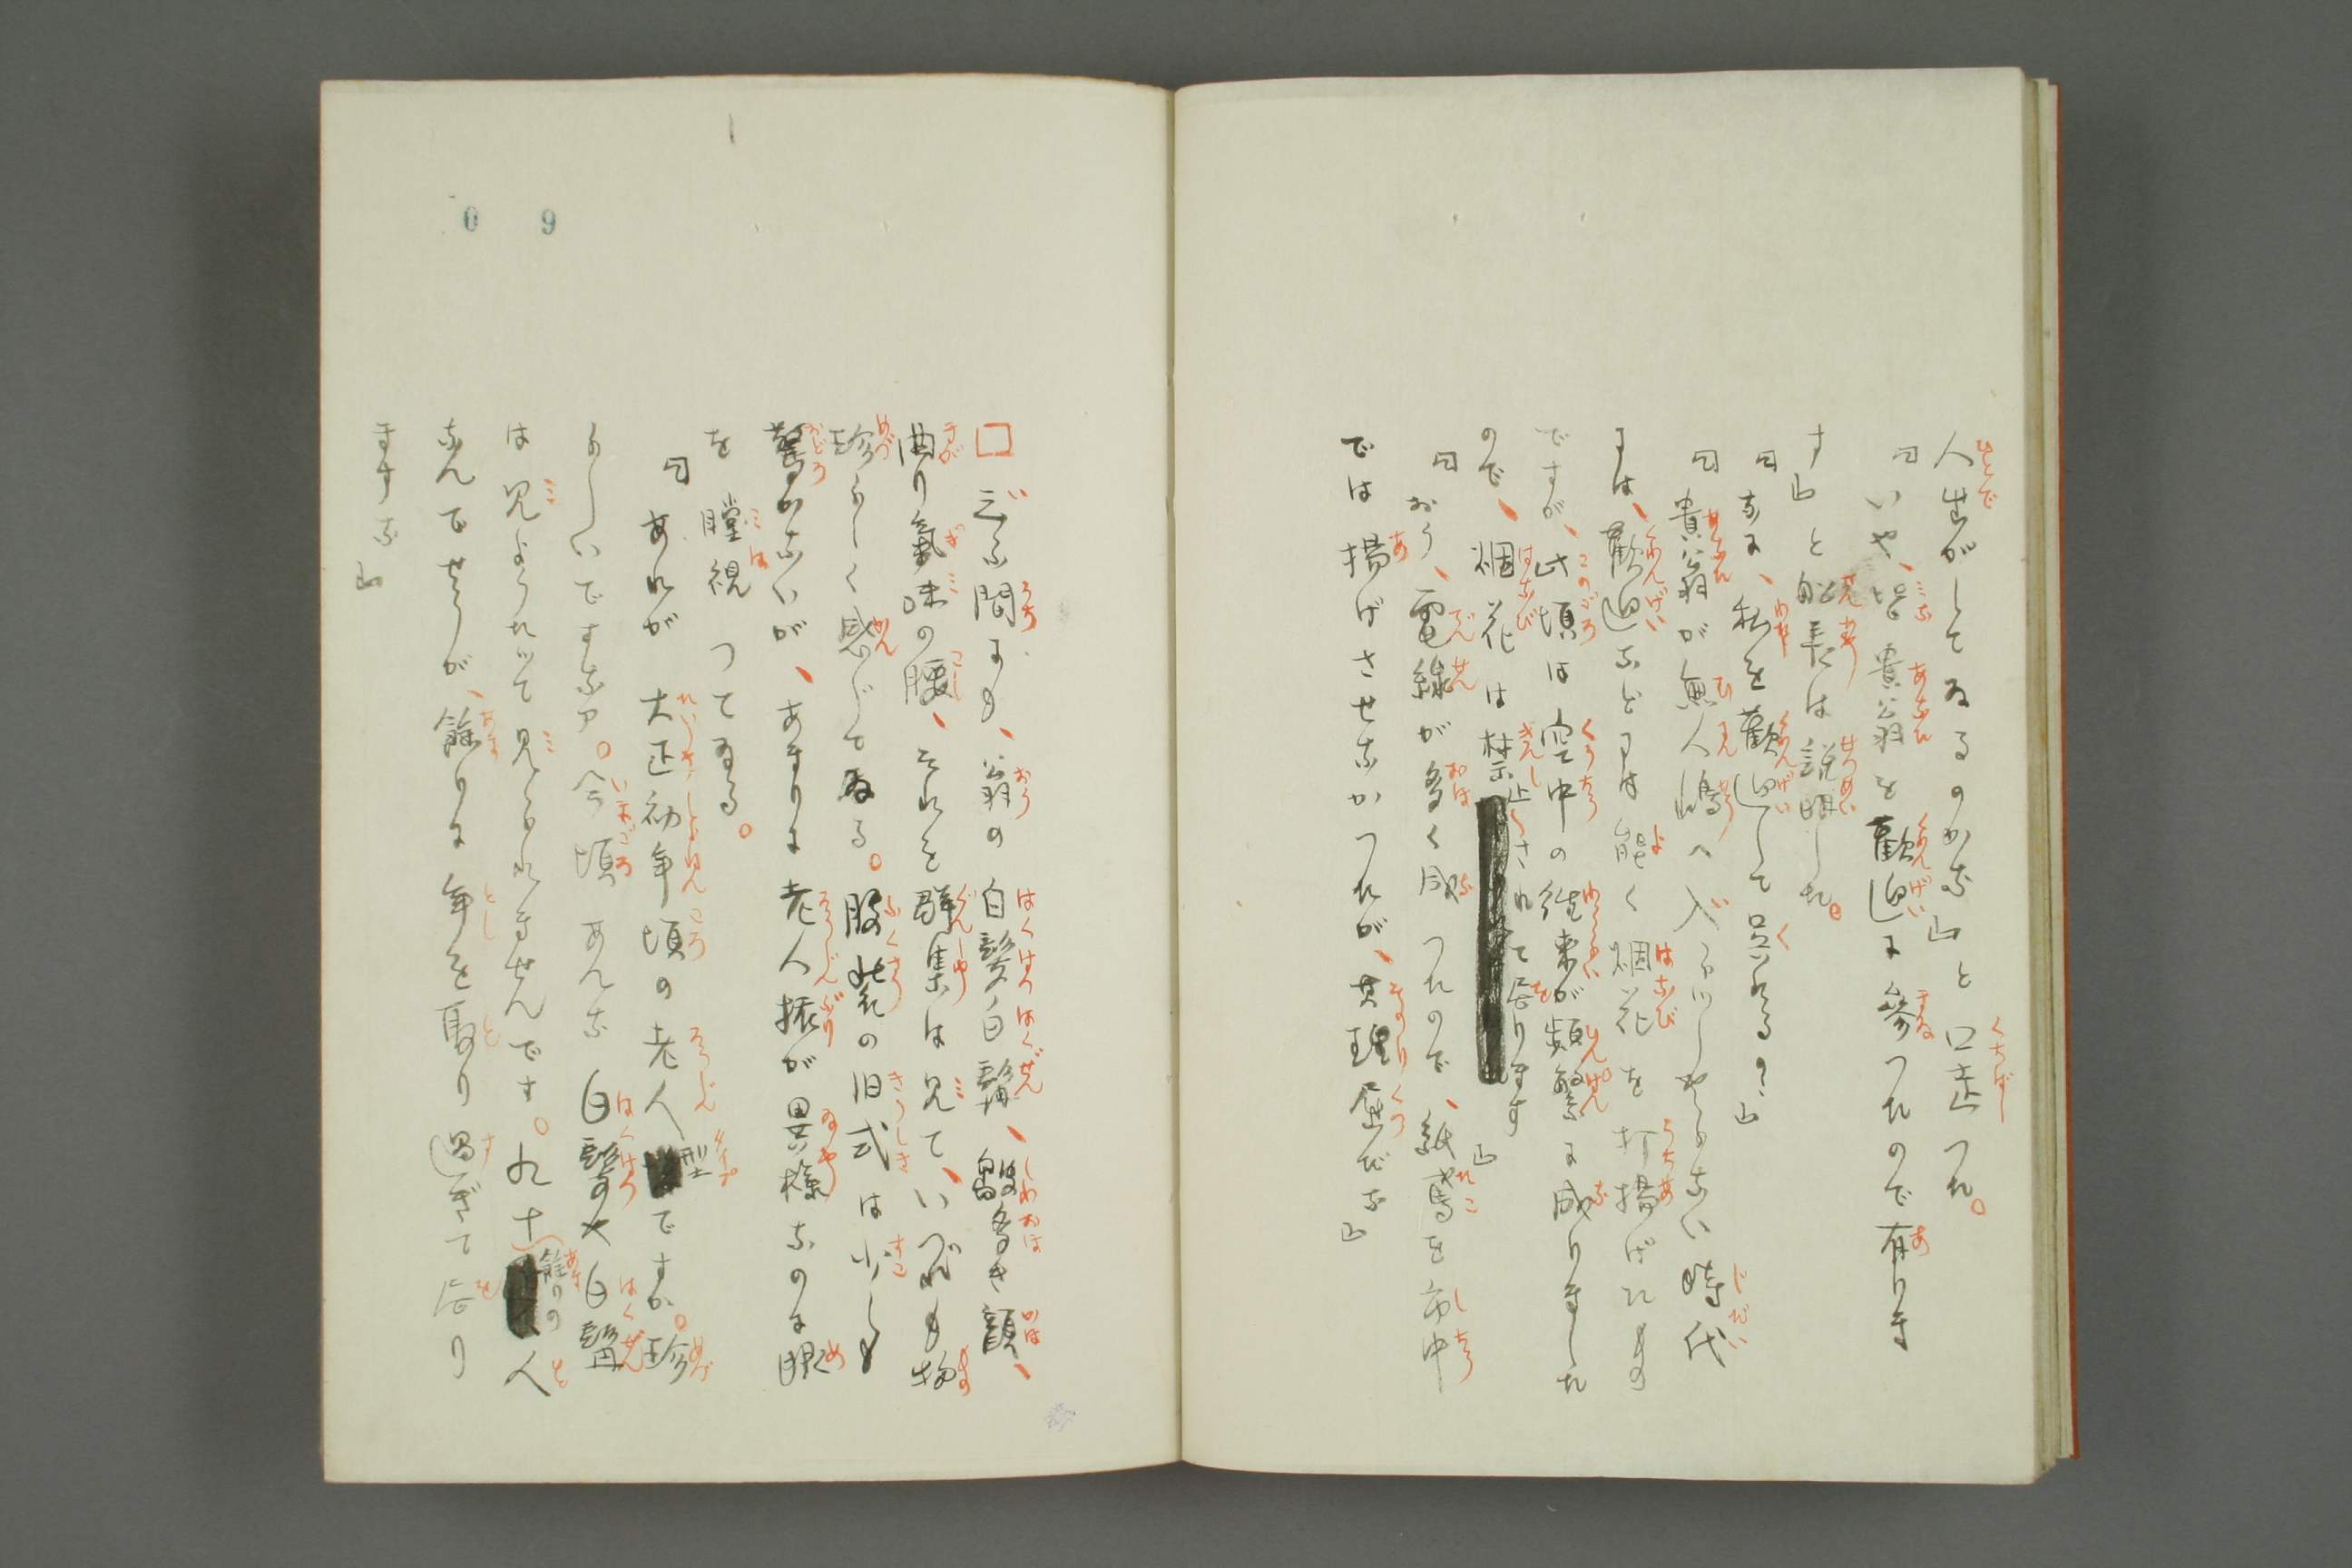 人出がしてゐるのかな』と口走つた。
『いや、皆貴翁を歓迎に參つたので有りま
す』と船長は説明した。
『なに、私を歓迎して呉れる？』
『貴翁が無人嶋へ入らツしやらない時代
には、歓迎などには能く烟花を打揚げたもの
ですが、此頃は空中の徃来が頻繁に成りました
ので、烟花は禁止されて居ります』
『おう、電線が多く成つたので、紙鳶を市中
では揚げさせなかつたが、其理屈だな』
□云ふ間にも、翁の白髮白髯、皺多き顔、
曲り氣味の腰、それを群集は見て、いづれも物
珍らしく感じてゐる。服裝の旧式は少しも
驚かないが、あまりに老人振が異樣なのに眼
を瞠視つてゐる。
『あれが大正初年頃の老人型ですか。珍
らしいですなァ。今頃あんな白髮や白髯
は見ようたツて見られません です。九十餘りの人
なんでせうが、餘りに年を取り過ぎて居り
ますな』
09